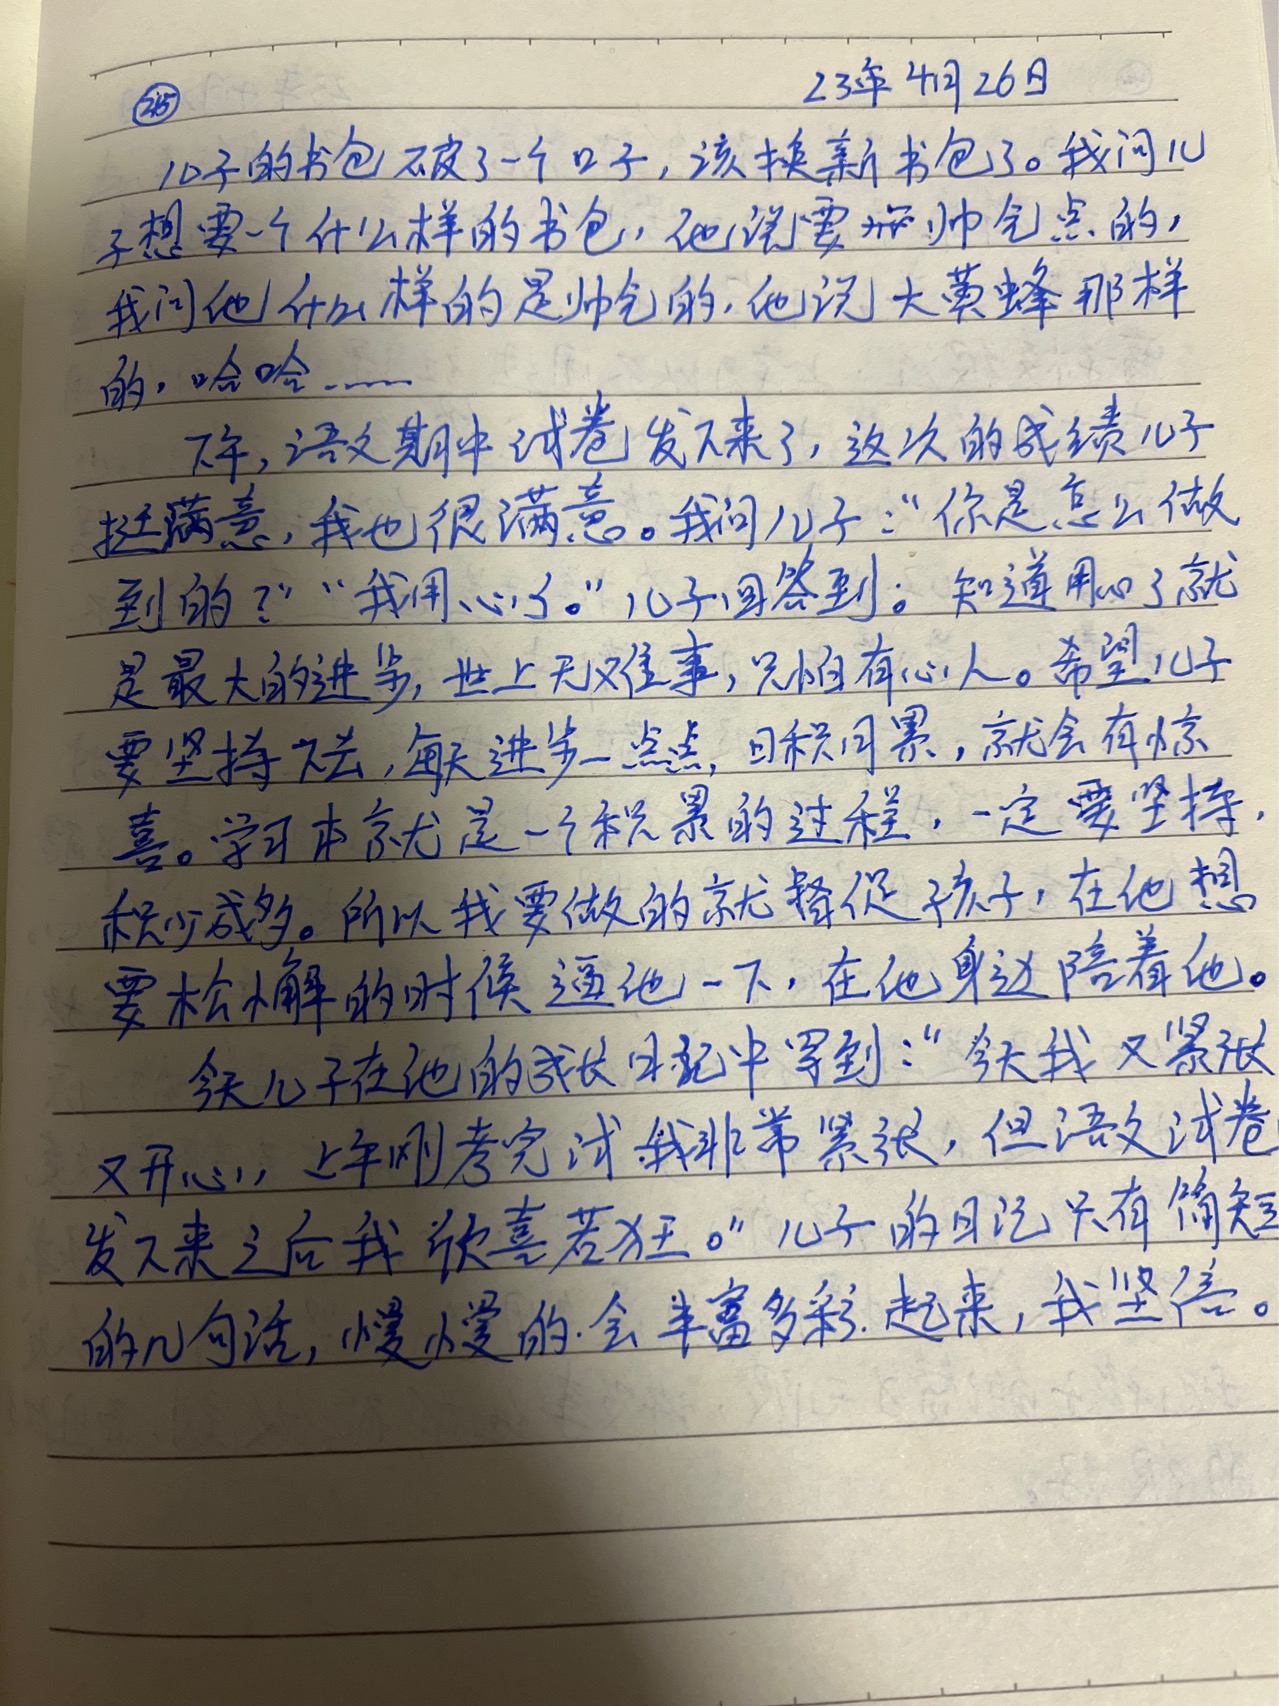 215
23年4月26日
儿子的书包破了一个口子，该换新书包了。我问儿
子想要一个什么样的书包，他说要帅气点的，
我问他什么样的是帅气的，他说大黄蜂那样
的，哈哈……
下午，语文期中试卷发下来了，这次的成绩儿子
挺满意，我也很满意。我问儿子：“你是怎么做
到的？”“我用心了。”儿子回答到。知道用心了就
是最大的进步，世上无难事，只怕有心人。希望儿子
要坚持下去，每天进步一点点，日积月累，就会有惊
喜。学习本就是一个积累的过程，一定要坚持，
积少成多。所以我要做的就督促孩子，在他想
要松懈的时候逼他一下，在他身边陪着他。
今天儿子在他的成长日记中写到：“今天我又紧张
又开心，上午刚考完试我非常紧张，但语文试卷
发下来之后我欣喜若狂。”儿子的日记只有简短
的几句话，慢慢的会丰富多彩起来，我坚信。